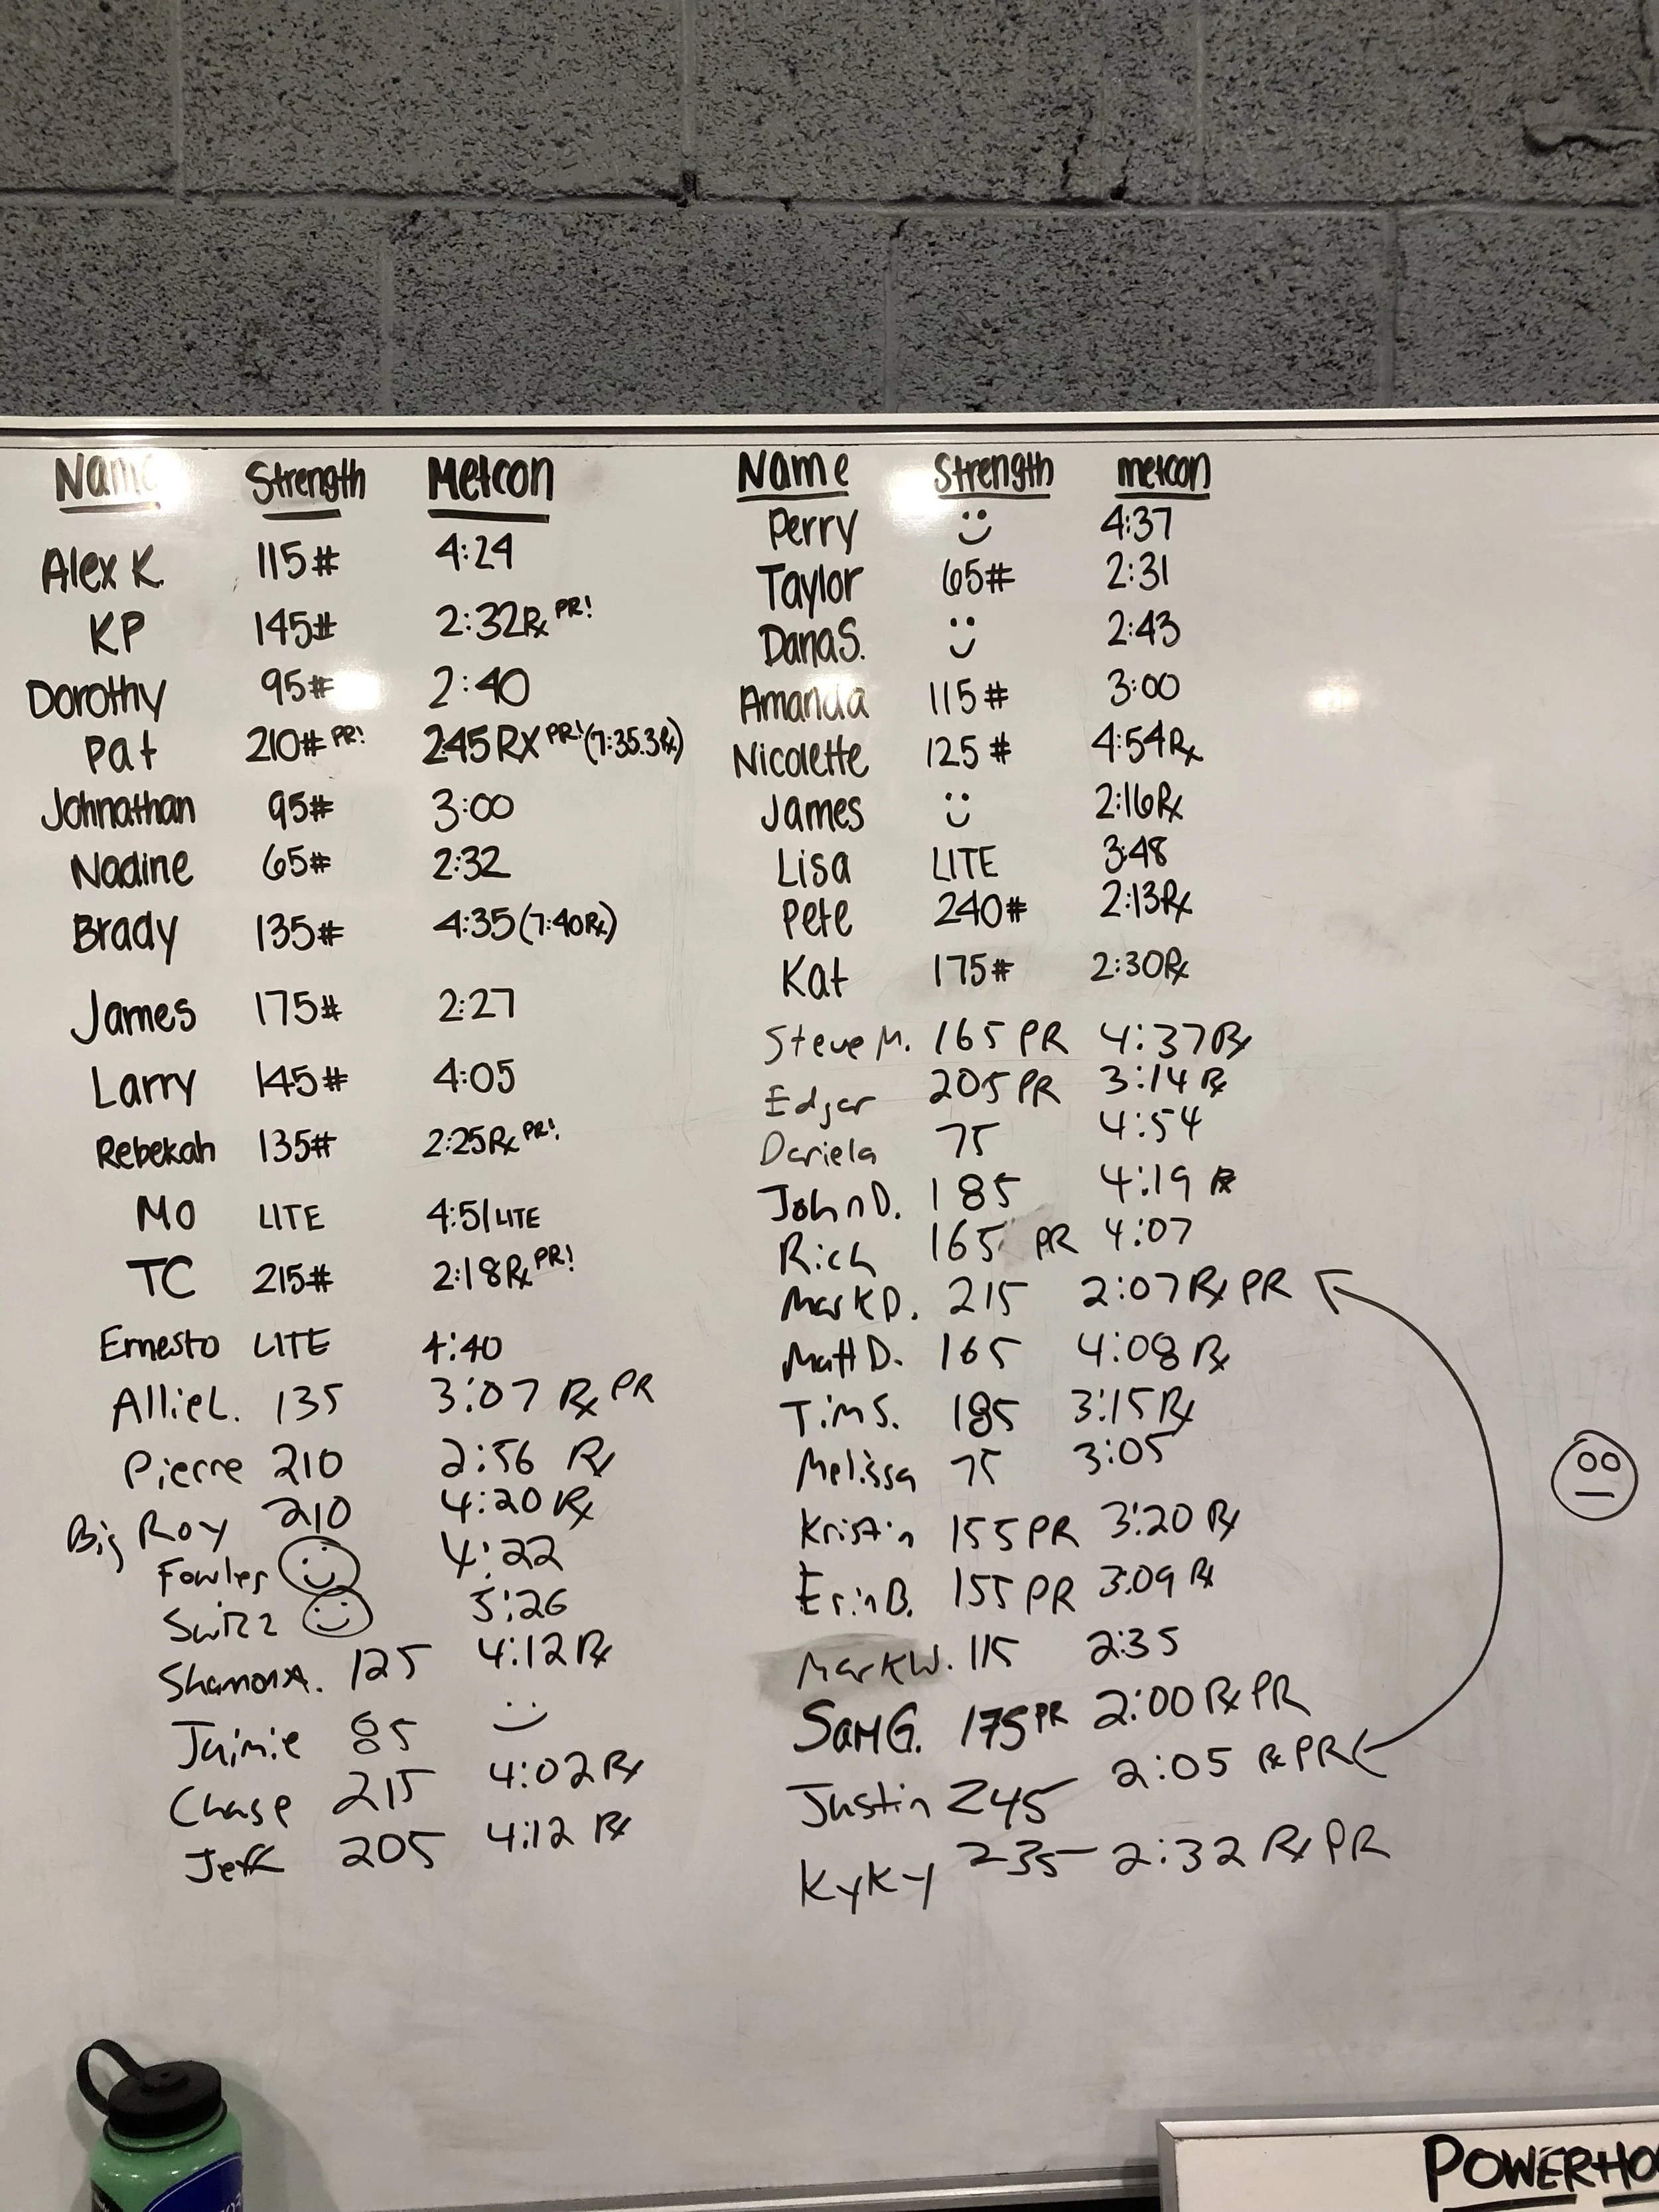 Name Strength Metcon
Alex K. 115# 4:24
KP 145# 2:32Rx PR!
Dorothy 95# 2:40
Pat 210# PR! 2:45 RX PR! (7:35.3Rx)
Johnathan 95# 3:00
Nadine 65# 2:32
Brady 135# 4:35 (7:40Rx)
James 175# 2:27
Larry 145# 4:05
Rebekah 135# 2:25Rx PR!
Mo LITE 4:51 LITE
TC 215# 2:18Rx PR!
Ernesto LITE 4:40
Allie L. 135 3:07 Rx PR
Pierre 210 2:56 Rx
Big Roy 210 4:20 Rx
Fowler 4:22
5:26
Shannon A. 125 4:12 Rx
Jaimie 85
Chase 215 4:02 Rx
Jeff 205 4:12 Rx
Name Strength metcon
Perry 4:37
Taylor 65# 2:31
Dana S. 2:43
Amanda 115# 3:00
Nicolette 125# 4:54Rx
James 2:16Rx
Lisa LITE 3:48
Pete 240# 2:13Rx
Kat 175# 2:30Rx
Steve M. 165 PR 4:37 Rx
Edgar 205 PR 3:14 Rx
Dariela 75 4:54
John D. 185 4:19 Rx
Rich 165 PR 4:07
Mark D. 215 2:07 Rx PR
Matt D. 165 4:08 Rx
Tim S. 185 3:15 Rx
Melissa 75 3:05
Kristin 155 PR 3:20 Rx
Erin B. 155 PR 3:09 Rx
Mark W. 115 2:35
Sam G. 175 PR 2:00 Rx PR
Justin 245 2:05 Rx PR
KyKy 235 2:32 Rx PR
POWERHO